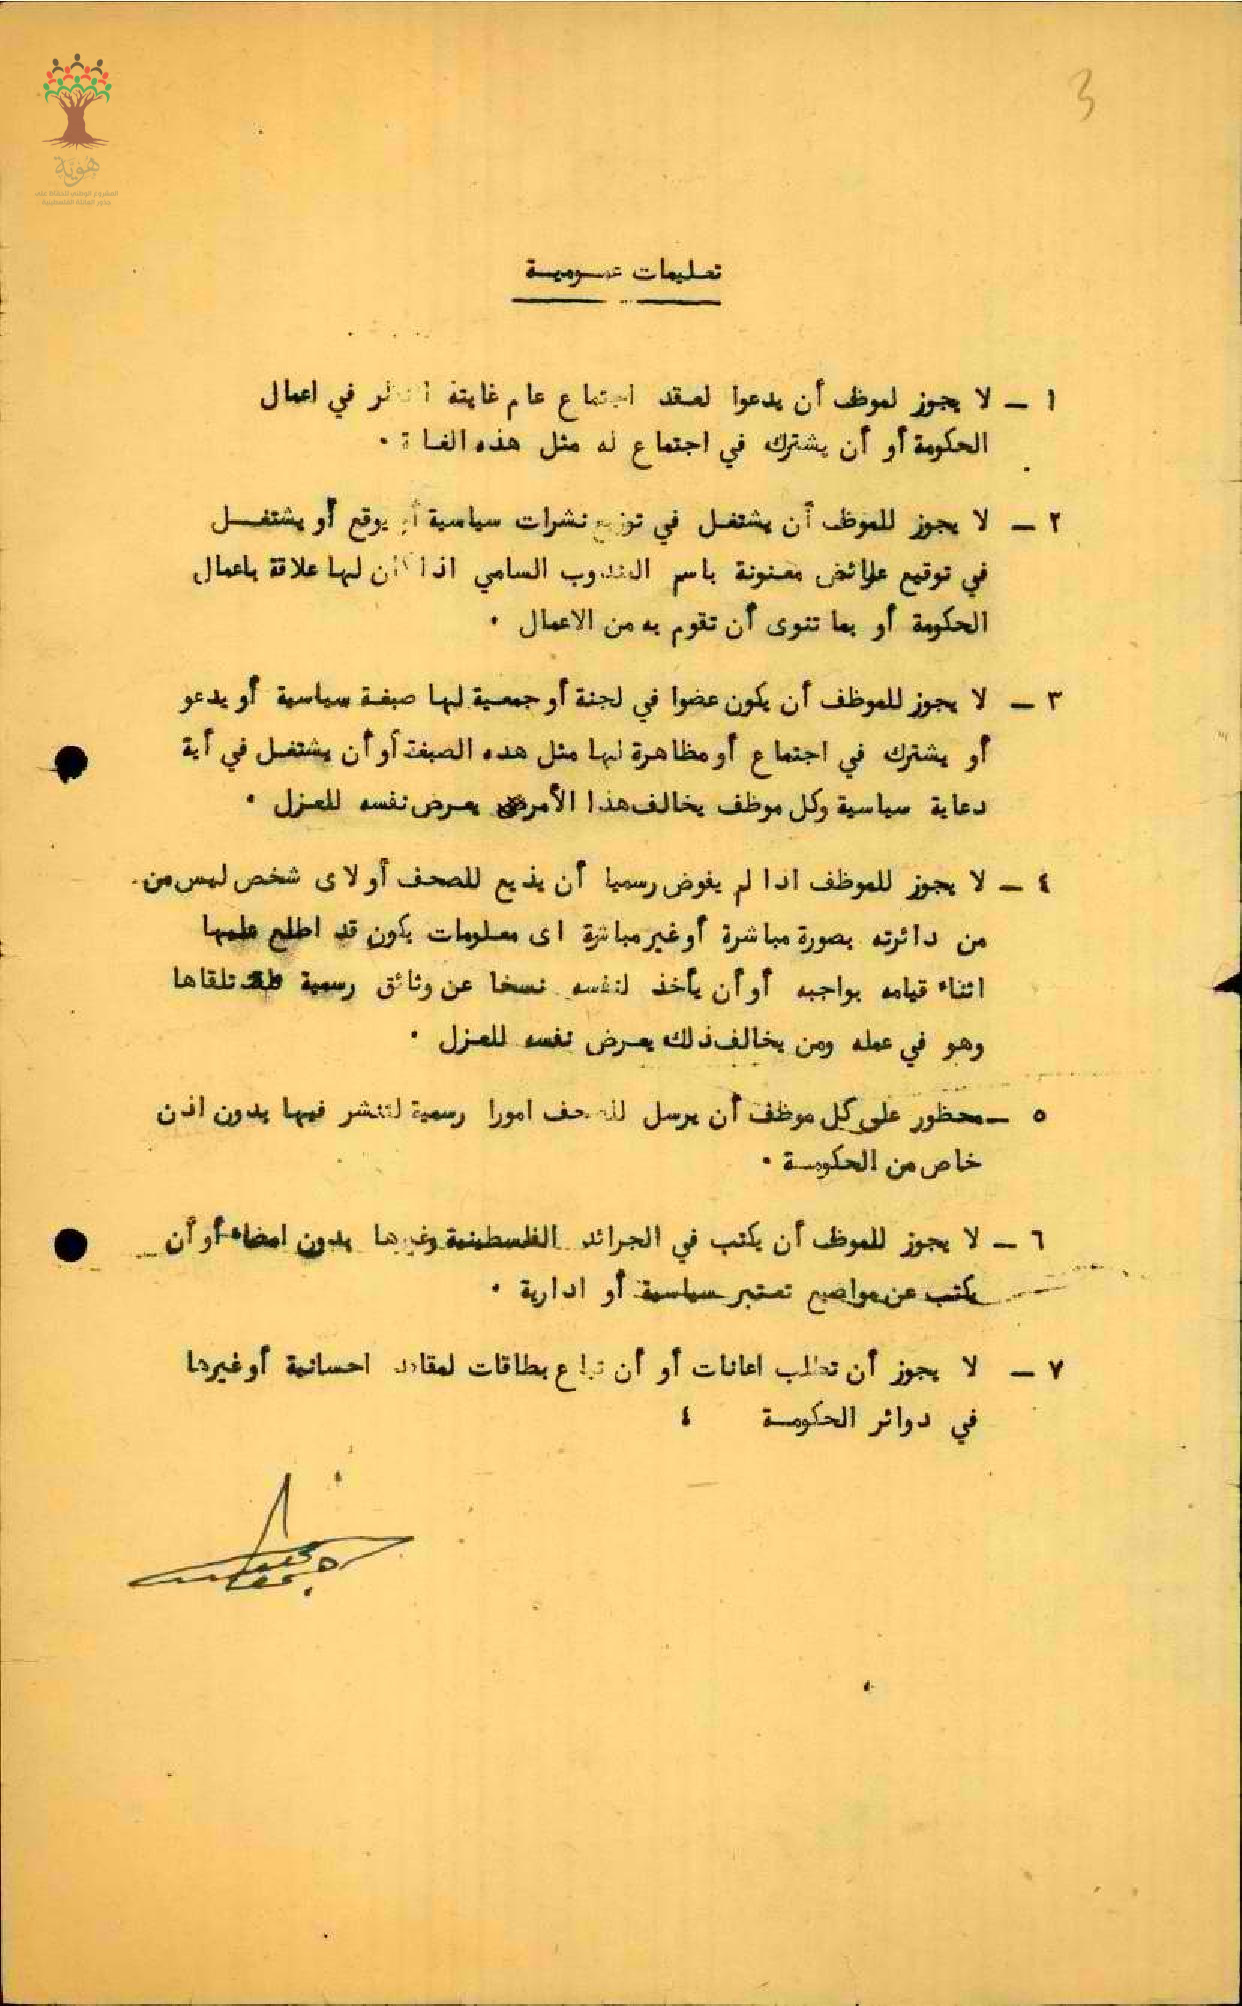 هُوِيَّة
المشروع الوطني للحفاظ على
جذور العائلة الفلسطينية
3
تعليمات عمومية
١ - لا يجوز لموظف أن يدعوا لعقد اجتماع عام غايته النظر في اعمال
الحكومة أو أن يشترك في اجتماع له مثل هذه الغاية ٠
٢ - لا يجوز للموظف أن يشتغل في توزيع نشرات سياسية أو يوقع أو يشتغل
في توقيع عرائض معنونة باسم المندوب السامي اذا كان لها علاقة باعمال
الحكومة أو بما تنوى أن تقوم به من الاعمال ٠
٣ - لا يجوز للموظف أن يكون عضوا في لجنة أو جمعية لها صبغة سياسية أو يدعو
أو يشترك في اجتماع أو مظاهرة لها مثل هده الصبغة أو أن يشتغل في أية
دعاية سياسية وكل موظف يخالف هذا الأمر يعرض نفسه للعزل ٠
٤ - لا يجوز للموظف اذا لم يفوض رسميا أن يذيع للصحف أو لاى شخص ليس من
من دائرته بصورة مباشرة أو غير مباشرة اى معلومات يكون قد اطلع عليها
اثناء قيامه بواجبه أو أن يأخذ لنفسه نسخا عن وثائق رسمية تلقاها
وهو في عمله ومن يخالف ذلك يعرض نفسه للعزل ٠
٥ - محظور على كل موظف أن يرسل للصحف امورا رسمية لتنشر فيها بدون اذن
خاص من الحكومة ٠
٦ - لا يجوز للموظف أن يكتب في الجرائد الفلسطينية وغيرها بدون امضاء أو أن
يكتب عن مواضيع تعتبر سياسية أو ادارية ٠
٧ - لا يجوز أن تطلب اعانات أو أن تباع بطاقات لمقاصد احسانية أو غيرها
في دوائر الحكومة ؛